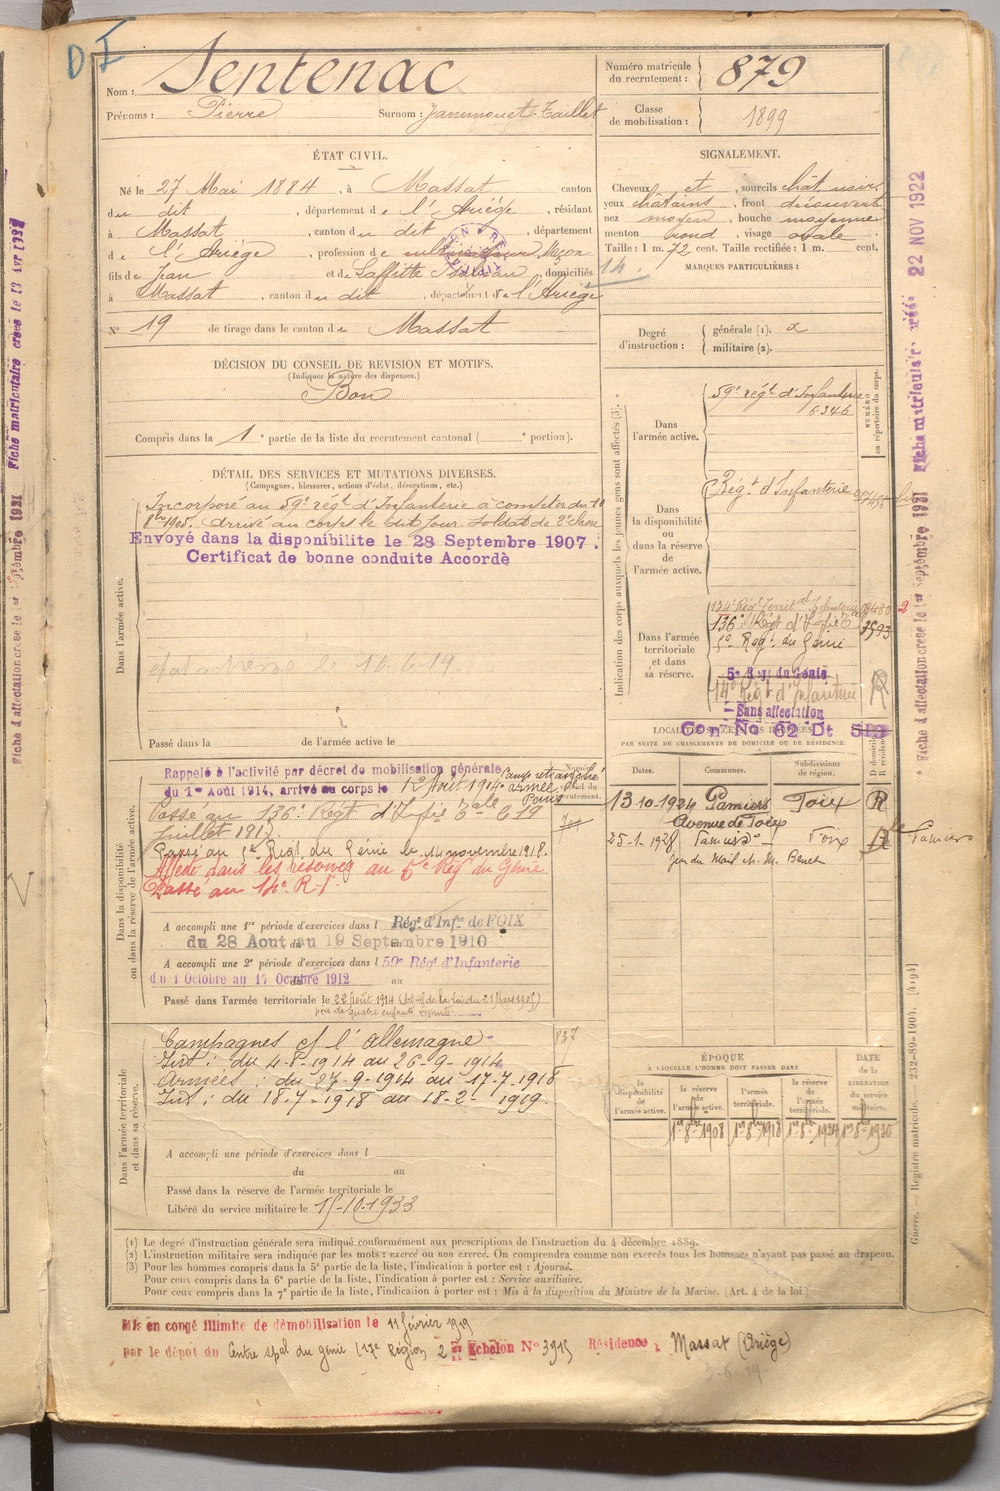 D I
Nom : Sentenac
Prénoms : Pierre Surnom : Jammouet-Taillet
Numéro matricule du recrutement : 879
Classe de mobilisation : 1899
ÉTAT CIVIL.
Né le 27 Mai 1884, à Massat canton
du dit, département de l'Ariège, résidant
à Massat, canton du dit, département
de l'Ariège, profession de cultivateur Maçon
fils de Jean et de Laffitte domiciliés
à Massat, canton du dit, département de l'Ariège
N° 19 de tirage dans le canton de Massat
SIGNALEMENT.
Cheveux et, sourcils chât noir.
yeux châtains, front découvert
nez moyen, bouche moyenne
menton rond, visage ovale
Taille : 1 m. 72 cent. Taille rectifiée : 1 m. cent,
14.
MARQUES PARTICULIÈRES :
Degré d'instruction : générale (1). 2
militaire (2).
DÉCISION DU CONSEIL DE REVISION ET MOTIFS.
(Indiquer la nature des dispenses.)
Bon
Compris dans la 1e partie de la liste du recrutement cantonal ( e portion).
Indication des corps auxquels les jeunes gens sont affectés (3).
NUMÉRO au répertoire du corps.
Dans l'armée active.
59e régt d'Infanterie
6346
Dans la disponibilité ou dans la réserve de l'armée active.
Régt d'Infanterie
Dans l'armée territoriale et dans sa réserve.
134e Régt Territal Infanterie 2
136e Régt d'Infie
5e Régt du Génie
5e Régt du Génie
14e Régt d'Infanterie R
Sans affectation
Con No 62 Dt
DÉTAIL DES SERVICES ET MUTATIONS DIVERSES.
(Campagnes, blessures, actions d'éclat, décorations, etc.)
Dans l'armée active.
Incorporé au 59e régt d'Infanterie à compter du 10
8bre 1905. Arrivé au corps le dit jour. Soldat de 2e classe
Envoyé dans la disponibilite le 28 Septembre 1907.
Certificat de bonne conduite Accordé
Passé dans la de l'armée active le
LOCALITÉS SUCCESSIVES HABITÉES
PAR SUITE DE CHANGEMENTS DE DOMICILE OU DE RÉSIDENCE.
Dates. Communes. Subdivisions de région. D domicile R résidence
13 10-1924 Pamiers Foix R
Avenue de Foix
25-1-1928 Pamiers Foix R Pamiers
Dans la disponibilité ou dans la réserve de l'armée active.
Rappelé à l'activité par décret de mobilisation générale
du 1er Août 1914, arrivé au corps le 12 Août 1914.
Camp retranché
Paris
Passé au 136e Régt d'Infie le 19
juillet 191
Passé au 5e Régt du Génie le 14 novembre 1918.
Affecté dans les réserves au 5e Rég du Génie
Passé au 14e R.I.
A accompli une 1re période d'exercices dans l Régt d'Infie de FOIX
du 28 Aout au 19 Septembre 1910
A accompli une 2e période d'exercices dans l 59e Régt d'Infanterie
du 1 Octobre au 17 Octobre 1912 au
Passé dans l'armée territoriale le 22 Août 1914 (Art de la loi du 21 Mars 1905)
père de quatre enfants vivants
Dans l'armée territoriale et dans sa réserve.
Campagnes c/ l'Allemagne
Int : du 4-8-1914 au 26-9-1914
Armées : du 27-9-1914 au 17-7-1918
Int : du 18-7-1918 au 18-2-1919
837
A accompli une période d'exercices dans l
du au
Passé dans la réserve de l'armée territoriale le
Libéré du service militaire le 15-10-1933
ÉPOQUE
A LAQUELLE L'HOMME DOIT PASSER DANS
la disponibilité de l'armée active.
la réserve de l'armée active.
l'armée territoriale.
la réserve de l'armée territoriale.
DATE de la LIBÉRATION du service militaire.
1er 8bre 1908 1er 8bre 1918 1er 8bre 1924 1er 8bre 1930
(1) Le degré d'instruction générale sera indiqué conformément aux prescriptions de l'instruction du 4 décembre 1889.
(2) L'instruction militaire sera indiquée par les mots : exercé ou non exercé. On comprendra comme non exercés tous les hommes n'ayant pas passé au drapeau.
(3) Pour les hommes compris dans la 5e partie de la liste, l'indication à porter est : Ajourné.
Pour ceux compris dans la 6e partie de la liste, l'indication à porter est : Service auxiliaire.
Pour ceux compris dans la 7e partie de la liste, l'indication à porter est : Mis à la disposition du Ministre de la Marine. (Art. 4 de la loi.)
Mis en congé illimité de démobilisation le 11 février 1919
par le dépot du Centre spal du génie (17e Région) 2 Echelon No 3915 Résidence : Massat (Ariège)
Fiche d'affectation créée le 1er Septembre 1931 Fiche matricule créée 22 NOV 1922
Guerre. — Registre matricule. 232-89-1904. [4194]
Fiche d'affectation créée le 1er Septembre 1931 Fiche matriculaire créée le 13 Avr 1921